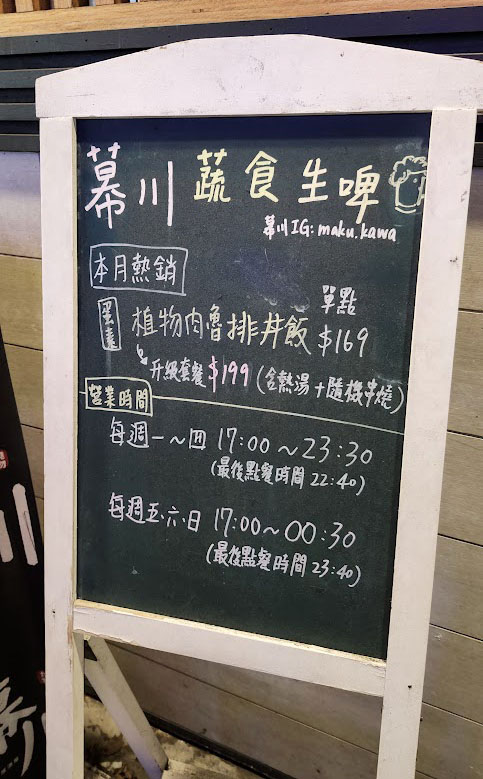 幕川 蔬食生啤
幕川IG: maku.kawa
本月熱銷
單點
蛋素 植物肉魯排丼飯 $169
升級套餐 $199 (含熱湯+隨機串燒)
營業時間
每週一～四 17:00～23:30
(最後點餐時間 22:40)
每週五、六、日 17:00～00:30
(最後點餐時間 23:40)